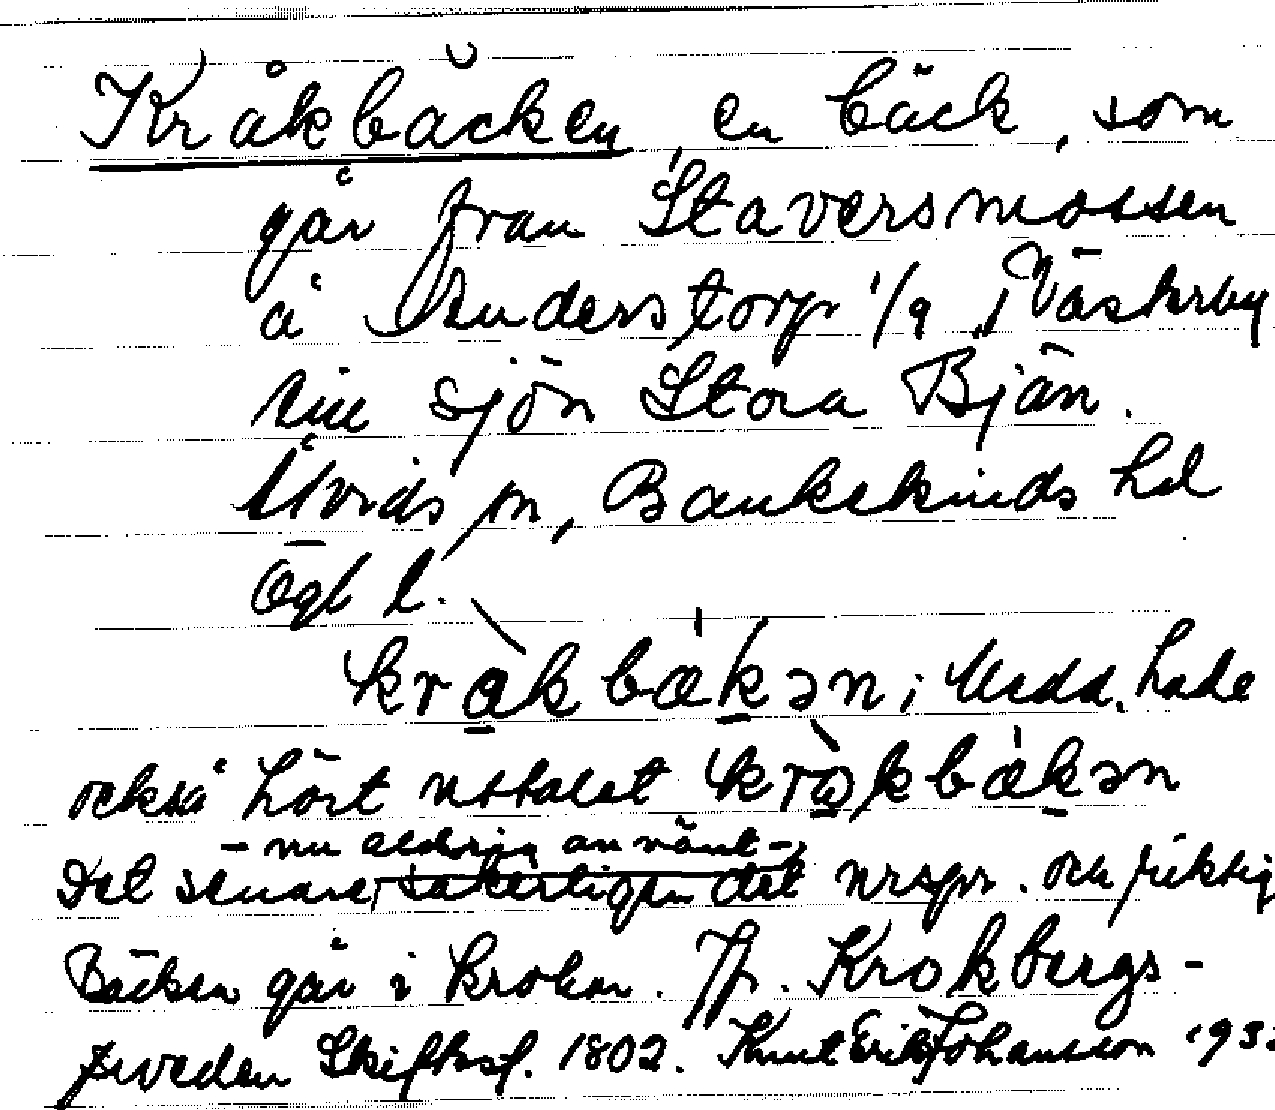 Kråkbäcken, en bäck, som
går från Staversmossen
å Understorp 1/9, i Västerby
till sjön Stora Bjän.
Åtvids sn, Bankekinds hd
Ögl l.
kràkbækən; Medd. hade
också hört uttalet krokbækən
- nu aldrig använt -
Det senare säkerligen det urspr. och riktig
Bäcken går i krokar. Jfr. Krokbergs-
sveden Skiftesf. 1802. Knut Erik Johansson 193